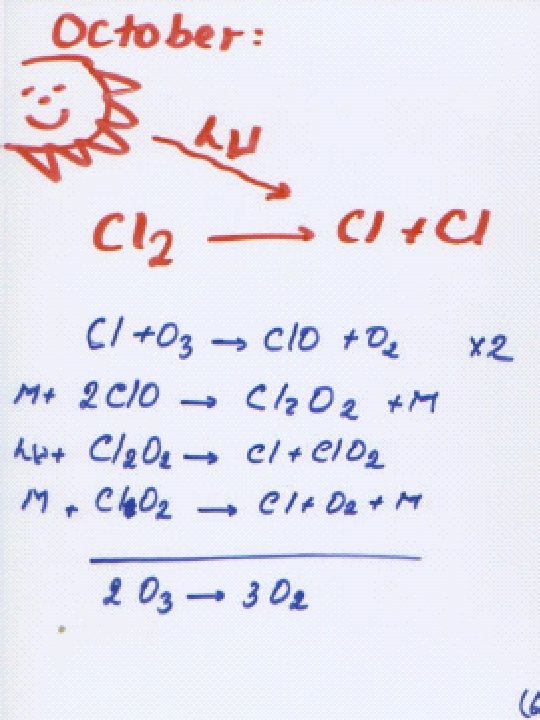 October:
hν
Cl₂ → Cl + Cl
Cl + O₃ → ClO + O₂ ×2
M + 2ClO → Cl₂O₂ + M
hν + Cl₂O₂ → Cl + ClO₂
M + ClO₂ → Cl + O₂ + M
2 O₃ → 3 O₂